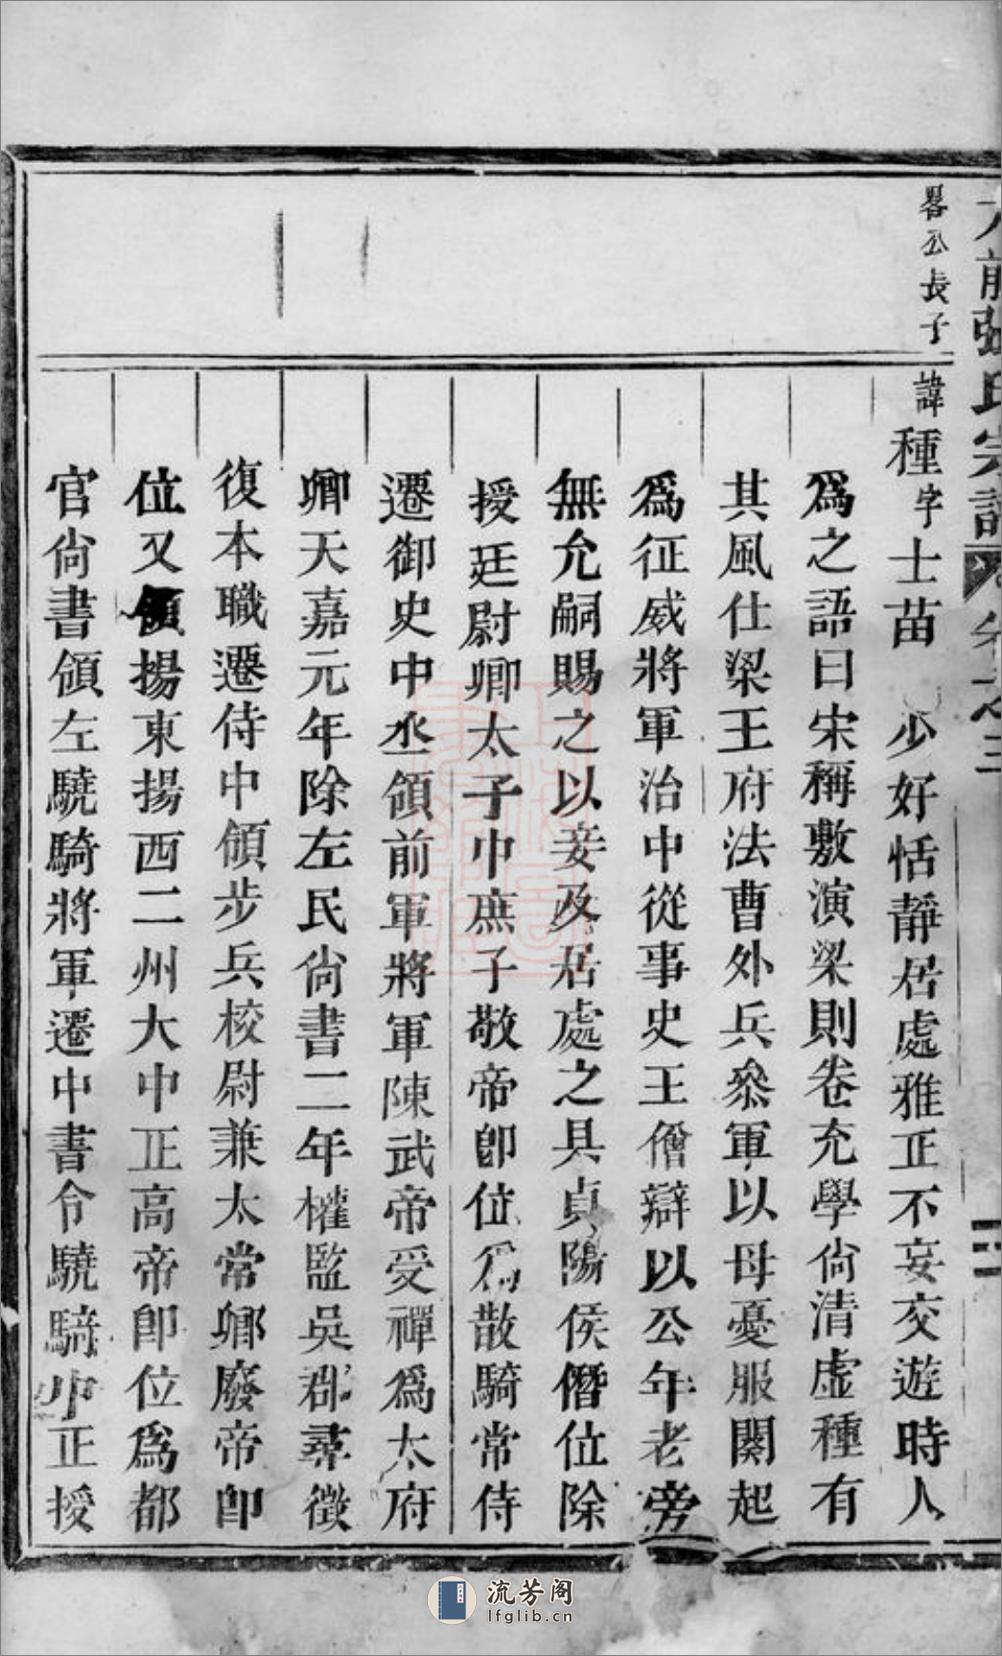 前張氏宗譜 卷之三
畧公長子
諱種字士苗 少好恬靜居處雅正不妄交遊時人
爲之語曰宋稱敷演梁則卷充學尙清虛種有
其風仕梁王府法曹外兵叅軍以母憂服闋起
爲征威將軍治中從事史王僧辯以公年老旁
無允嗣賜之以妾及居處之具貞陽侯僭位除
授廷尉卿太子中庶子敬帝卽位爲散騎常侍
遷御史中丞領前軍將軍陳武帝受禪爲太府
卿天嘉元年除左民尙書二年權監吳郡尋徵
復本職遷侍中領步兵校尉兼太常卿廢帝卽
位又領揚東揚西二州大中正高帝卽位爲都
官尙書領左驍騎將軍遷中書令驍騎中正授
流芳阁
lfglib.cn